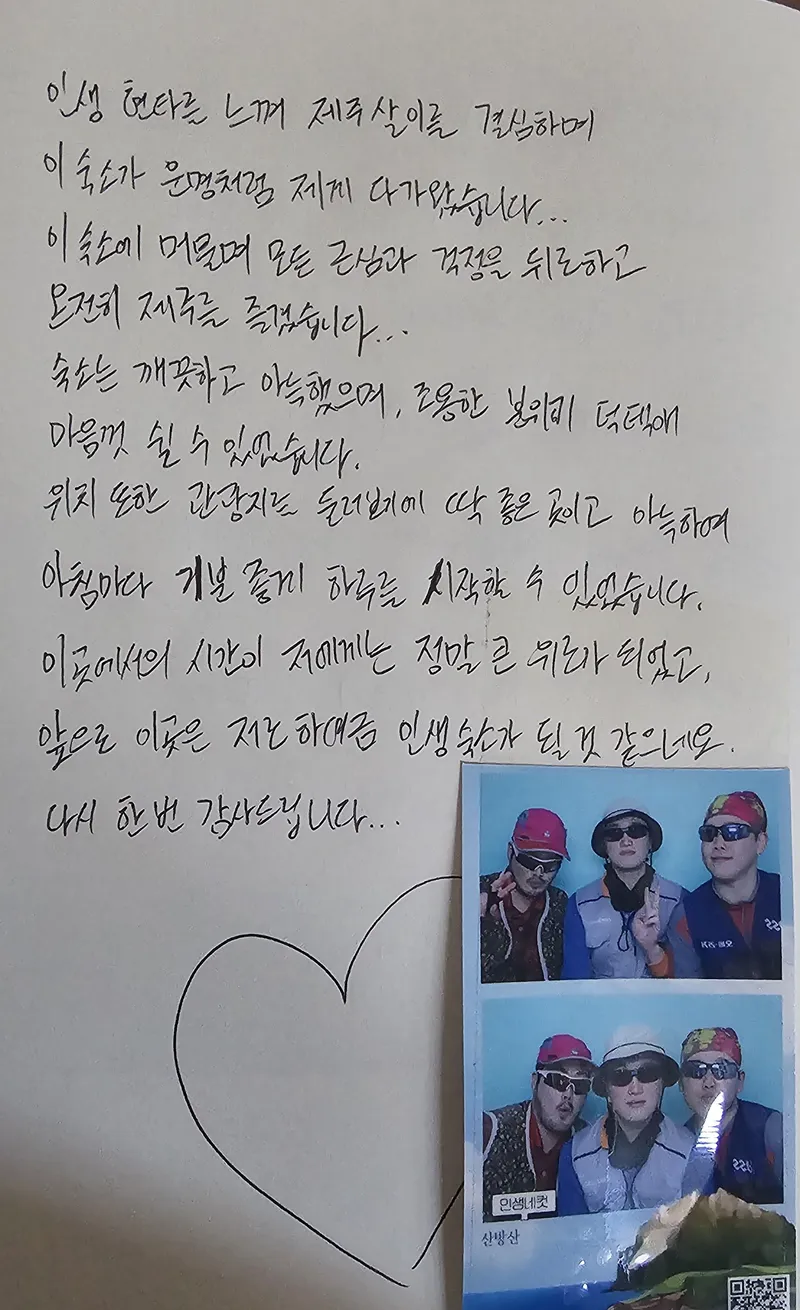 인생 현타를 느껴 제주살이를 결심하며
이 숙소가 운명처럼 제게 다가왔습니다...
이 숙소에 머물며 모든 근심과 걱정을 뒤로하고
온전히 제주를 즐겼습니다...
숙소는 깨끗하고 아늑했으며, 조용한 분위기 덕택애
마음껏 쉴 수 있었습니다.
위치 또한 관광지를 둘러보기에 딱 좋은 곳이고 아늑하여
아침마다 기분 좋게 하루를 시작할 수 있었습니다.
이곳에서의 시간이 저에게는 정말 큰 위로가 되었고,
앞으로 이곳은 저로 하여금 인생숙소가 될 것 같으네요.
다시 한번 감사드립니다...
인생네컷
산방산